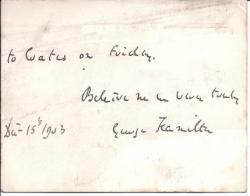 to Coates on Friday.
Believe me
Yours truly
Dec 15th/1903
George Hamilton